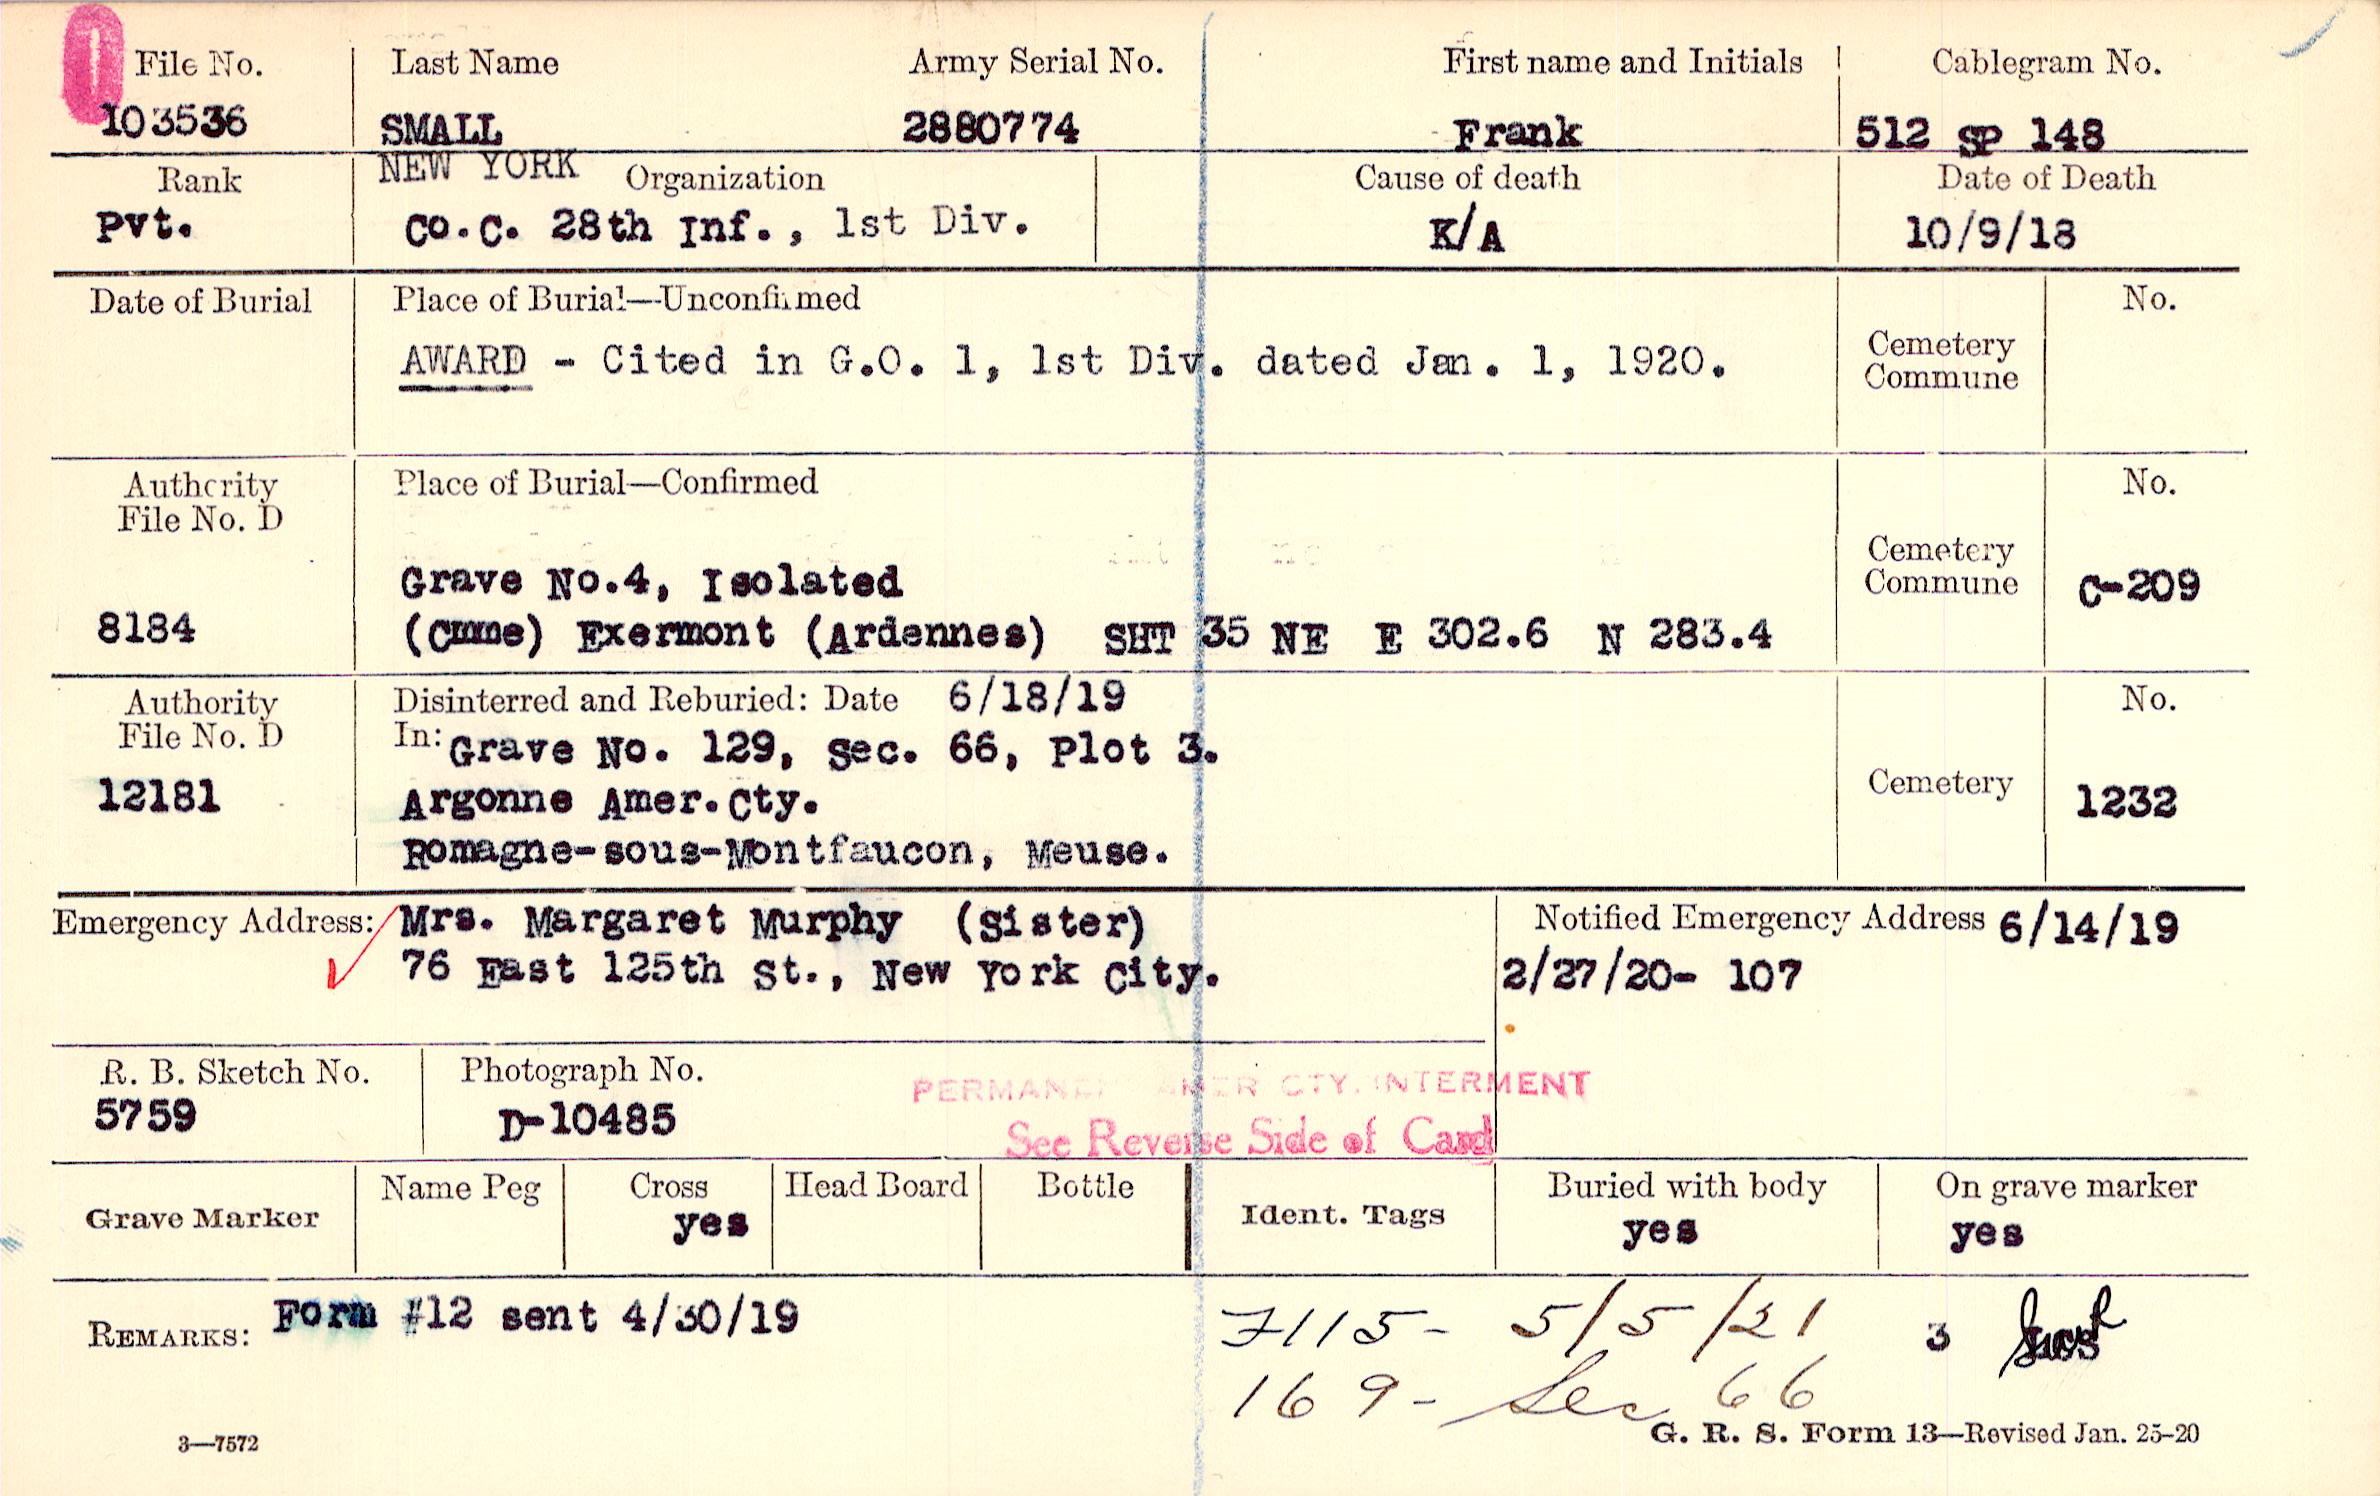 File No. Last Name Army Serial No. First name and Initials Cablegram No.
103536 SMALL 2880774 Frank 512 SP 148
Rank NEW YORK Organization Cause of death Date of Death
Pvt. Co.C. 28th Inf., 1st Div. K/A 10/9/18
Date of Burial Place of Burial—Unconfirmed No.
AWARD - Cited in G.O. 1, 1st Div. dated Jan. 1, 1920.
Cemetery
Commune
Authority Place of Burial—Confirmed No.
File No. D
Cemetery
Grave No.4, Isolated Commune C-209
8184 (Cmme) Exermont (Ardennes) SHT 35 NE E 302.6 N 283.4
Authority Disinterred and Reburied: Date 6/18/19 No.
File No. D In: Grave No. 129, Sec. 66, Plot 3.
12181 Argonne Amer.Cty. Cemetery 1232
Romagne-sous-Montfaucon, Meuse.
Emergency Address: Mrs. Margaret Murphy (Sister) Notified Emergency Address 6/14/19
76 East 125th St., New York City. 2/27/20- 107
R. B. Sketch No. Photograph No.
5759 D-10485
AMER CTY. INTERMENT
See Reverse Side of Card
Grave Marker Name Peg Cross Head Board Bottle Ident. Tags Buried with body On grave marker
yes yes yes
REMARKS: Form #12 sent 4/30/19 7115- 5/5/21 3
169- Sec 66
3—7572 G. R. S. Form 13—Revised Jan. 25-20